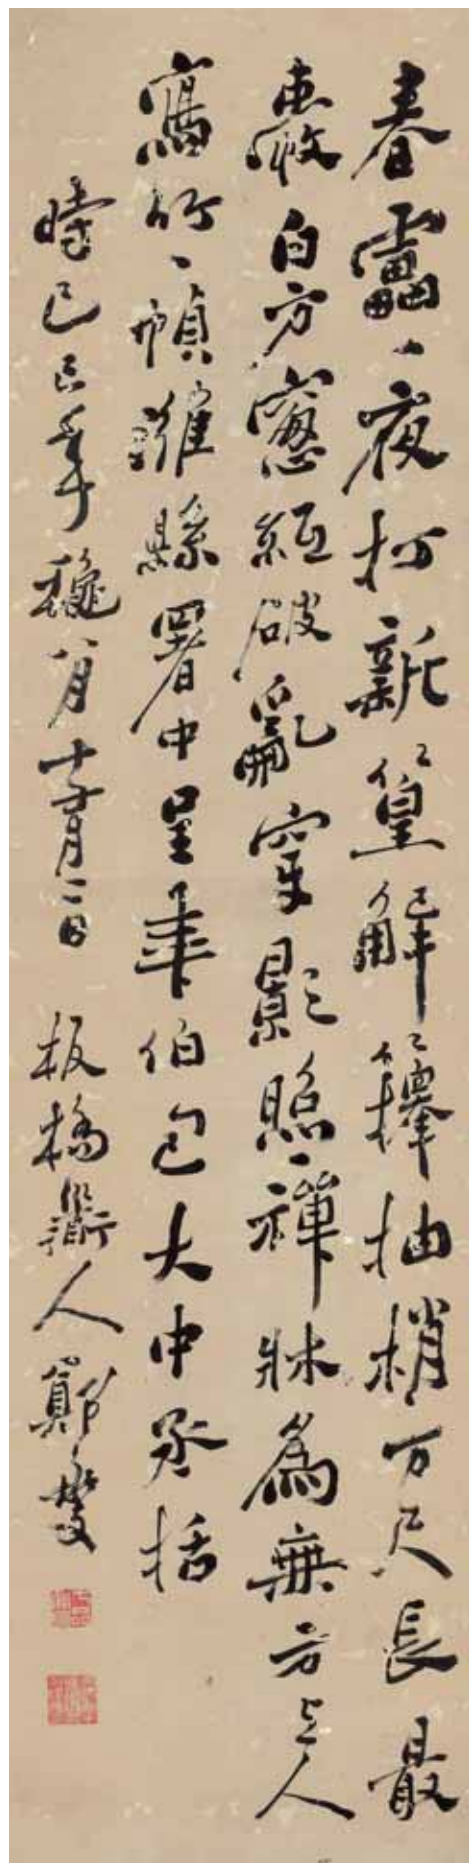 春靁一夜打新篁解籜抽梢万尺長最
白方窻紙破亂穿影照禪牀為無方上人
寫竹一幀濰縣署中呈華伯包大中丞括
時己巳年穐八月十日 板橋衟人鄭燮